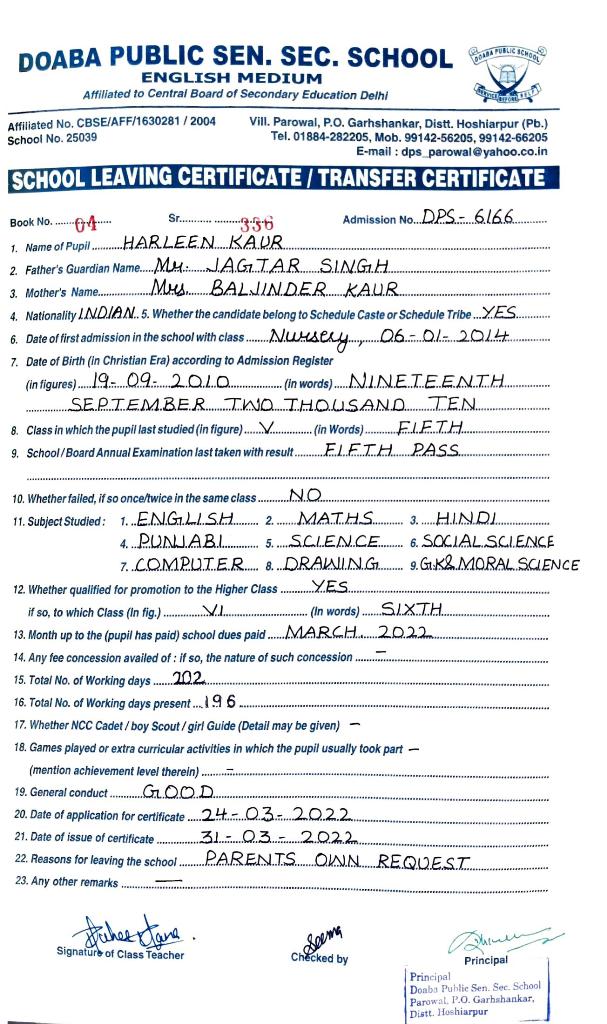 DOABA PUBLIC SEN. SEC. SCHOOL
ENGLISH MEDIUM
Affiliated to Central Board of Secondary Education Delhi
DOABA PUBLIC SCHOOL
Affiliated No. CBSE/AFF/1630281 / 2004
School No. 25039
Vill. Parowal, P.O. Garhshankar, Distt. Hoshiarpur (Pb.)
Tel. 01884-282205, Mob. 99142-56205, 99142-66205
E-mail : dps_parowal@yahoo.co.in
SCHOOL LEAVING CERTIFICATE / TRANSFER CERTIFICATE
Book No. 04 Sr. 336 Admission No. DPS-6166
1. Name of Pupil HARLEEN KAUR
2. Father's Guardian Name Mr. JAGTAR SINGH
3. Mother's Name Mrs BALJINDER KAUR
4. Nationality INDIAN 5. Whether the candidate belong to Schedule Caste or Schedule Tribe YES
6. Date of first admission in the school with class Nursery, 06-01-2014
7. Date of Birth (in Christian Era) according to Admission Register
(in figures) 19-09-2010 (in words) NINETEENTH
SEPTEMBER TWO THOUSAND TEN
8. Class in which the pupil last studied (in figure) V (in Words) FIFTH
9. School / Board Annual Examination last taken with result FIFTH PASS
10. Whether failed, if so once/twice in the same class NO
11. Subject Studied : 1. ENGLISH 2. MATHS 3. HINDI
4. PUNJABI 5. SCIENCE 6. SOCIAL SCIENCE
7. COMPUTER 8. DRAWING 9. G.K & MORAL SCIENCE
12. Whether qualified for promotion to the Higher Class YES
if so, to which Class (In fig.) VI (In words) SIXTH
13. Month up to the (pupil has paid) school dues paid MARCH. 2022
14. Any fee concession availed of : if so, the nature of such concession –
15. Total No. of Working days 202
16. Total No. of Working days present 196
17. Whether NCC Cadet / boy Scout / girl Guide (Detail may be given) –
18. Games played or extra curricular activities in which the pupil usually took part –
(mention achievement level therein) –
19. General conduct GOOD
20. Date of application for certificate 24-03-2022
21. Date of issue of certificate 31-03-2022
22. Reasons for leaving the school PARENTS OWN REQUEST
23. Any other remarks —
Seema
Signature of Class Teacher Checked by Principal
Principal
Doaba Public Sen. Sec. School
Parowal, P.O. Garhshankar,
Distt. Hoshiarpur